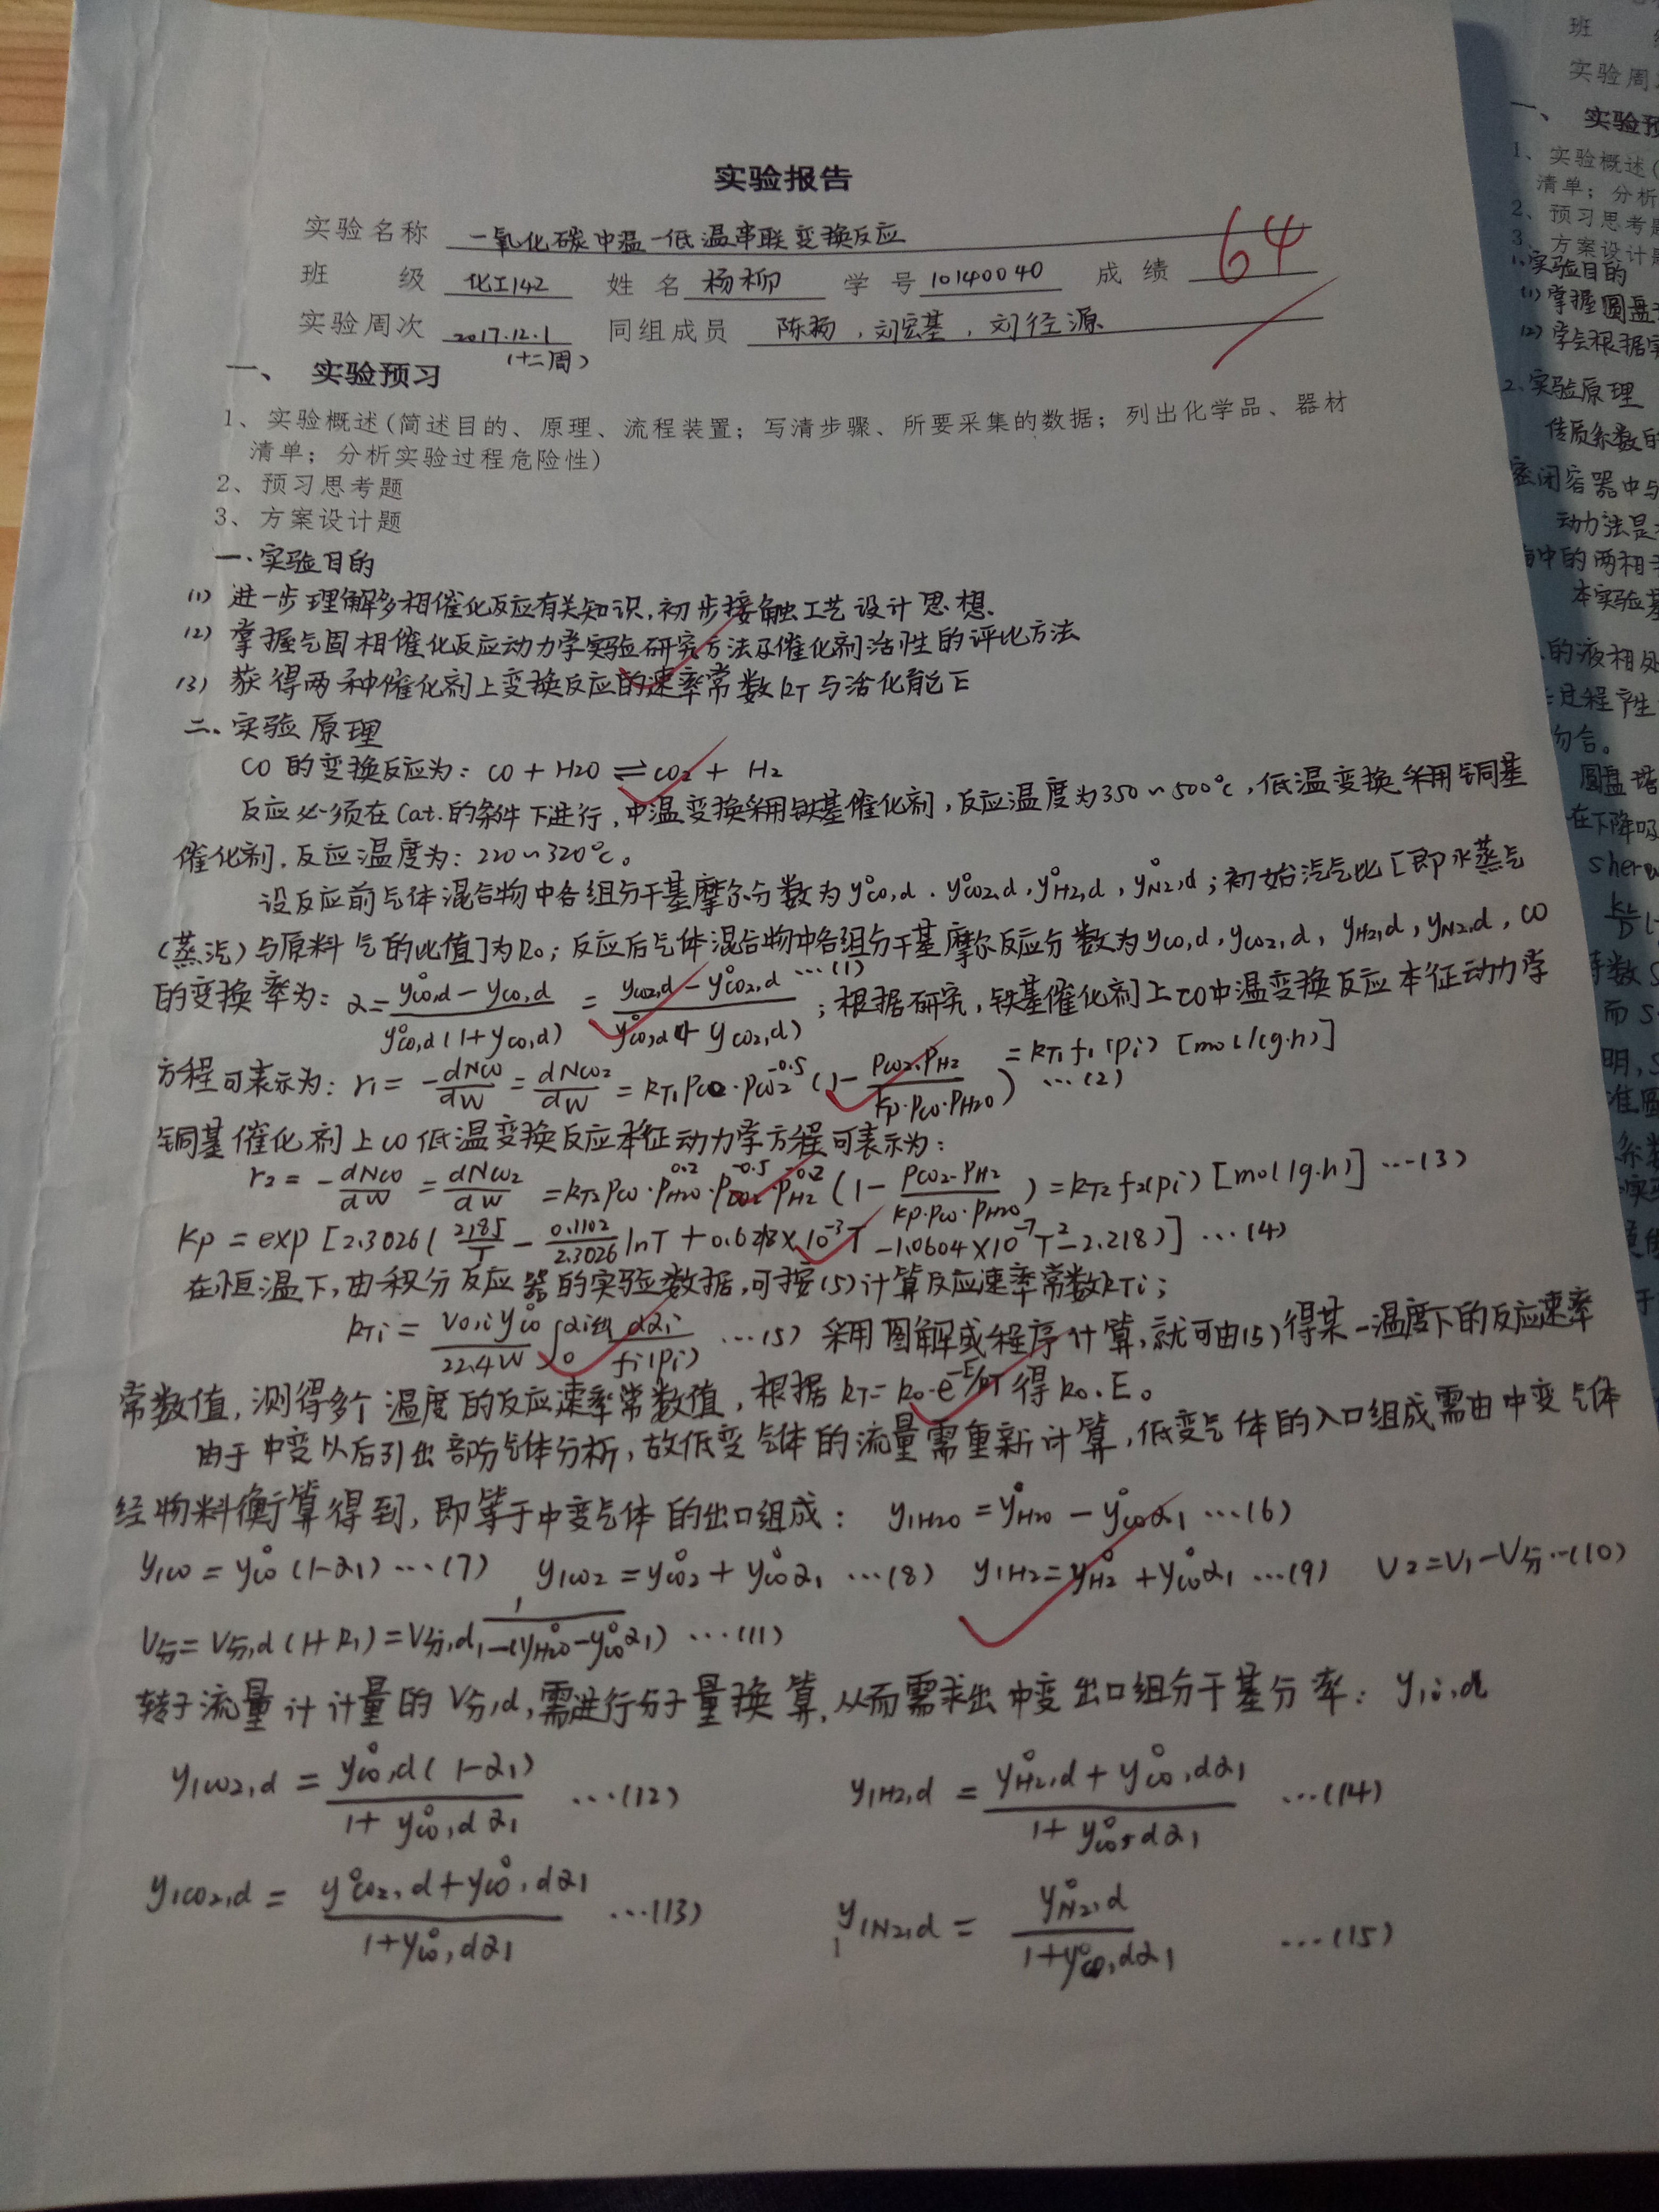 实验报告
实验名称 一氧化碳中温-低温串联变换反应
班 级 化工142 姓名 杨柳 学号 10140040 成绩 64
实验周次 2017.12.1 同组成员 陈杨,刘宏基,刘径源
(十二周)
一、 实验预习
1、实验概述(简述目的、原理、流程装置;写清步骤、所要采集的数据;列出化学品、器材
清单;分析实验过程危险性)
2、预习思考题
3、方案设计题
一.实验目的
(1) 进一步理解多相催化反应有关知识,初步接触工艺设计思想.
(2) 掌握气固相催化反应动力学实验研究方法及催化剂活性的评比方法
(3) 获得两种催化剂上变换反应的速率常数kT与活化能E
二.实验原理
CO的变换反应为: CO + H2O ⇌ CO2 + H2
反应必须在Cat.的条件下进行,中温变换采用铁基催化剂,反应温度为350~500°C,低温变换采用铜基
催化剂,反应温度为:220~320°C。
设反应前气体混合物中各组分干基摩尔分数为y°co,d . y°co2,d, y°H2,d, y°N2,d;初始汽气比[即水蒸气
(蒸汽)与原料气的比值]为R0;反应后气体混合物中各组分干基摩尔反应分数为yco,d, yco2,d, yH2,d, yN2,d, CO
的变换率为: α = (y°co,d - yco,d) / (y°co,d(1+yco,d)) = (yco2,d - y°co2,d) / (y°co,d(1+yco2,d)) …(1) ;根据研究,铁基催化剂上CO中温变换反应本征动力学
方程可表示为: r1 = -dNco/dW = dNco2/dW = kT1 pco·pco2^-0.5 (1 - pco2·pH2 / (Kp·pco·pH2O)) = kT1 f1(pi) [mol/(g·h)] …(2)
铜基催化剂上CO低温变换反应本征动力学方程可表示为:
r2 = -dNco/dW = dNco2/dW = kT2 pco·pH2O^0.2·pco2^-0.5·pH2^-0.2 (1 - pco2·pH2 / (Kp·pco·pH2O)) = kT2 f2(pi) [mol/g·h)] …(3)
Kp = exp [2.3026( 2185/T - 0.1102/2.3026 lnT + 0.6218×10^-3 T - 1.0604×10^-7 T^2 - 2.218)] …(4)
在恒温下,由积分反应器的实验数据,可按(5)计算反应速率常数kTi;
kTi = V0,i y°co / 22.4W ∫0^αi出 dαi / fi(pi) …(5) 采用图解或程序计算,就可由(5)得某一温度下的反应速率
常数值,测得多个温度的反应速率常数值,根据kT = k0·e^-E/RT 得k0.E。
由于中变以后引出部分气体分析,故低变气体的流量需重新计算,低变气体的入口组成需由中变气体
经物料衡算得到,即等于中变气体的出口组成: y1H2O = y°H2O - y°co α1 …(6)
y1co = y°co (1-α1) …(7) y1co2 = y°co2 + y°co α1 …(8) y1H2 = y°H2 + y°co α1 …(9) V2 = V1 - V分 …(10)
V分 = V分,d (1+R1) = V分,d 1/(1-(y°H2O - y°co α1)) …(11)
转子流量计计量的V分,d,需进行分子量换算,从而需求出中变出口组分干基分率: y1i,d
y1co2,d = y°co,d (1-α1) / (1 + y°co,d α1) …(12) y1H2,d = (y°H2,d + y°co,d α1) / (1 + y°co,d α1) …(14)
y1co2,d = (y°co2,d + y°co,d α1) / (1 + y°co,d α1) …(13) y1N2,d = y°N2,d / (1 + y°co,d α1) …(15)
1
班
实验周
一、 实验预
1、实验概述(
清单;分析
2、预习思考题
3、方案设计题
1.实验目的
(1) 掌握圆盘
(2) 学会根据实
2.实验原理
传质系数的
密闭容器中与
动力法是
中的两相
本实验基
的液相处
过程产生
吻合。
圆盘塔
在下降吸
sher
数 S
而 S
明,S